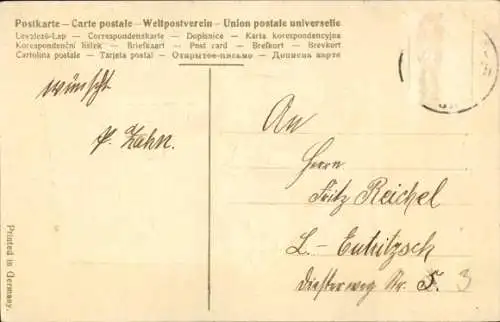 Postkarte – Carte postale – Weltpostverein – Union postale universelle
Levelező-Lap – Correspondenskarte – Dopisnice – Karta korespondencyjna
Korespondenční lístek – Briefkaart – Post card – Brefkort – Brevkort
Cartolina postale – Tarjeta postal – Открытое письмо – Дописна карта
wünscht
P. Zahn.
An
Herrn
Fritz Reichel
L.- Eutritzsch
Diesterweg Str. 3
Printed in Germany.